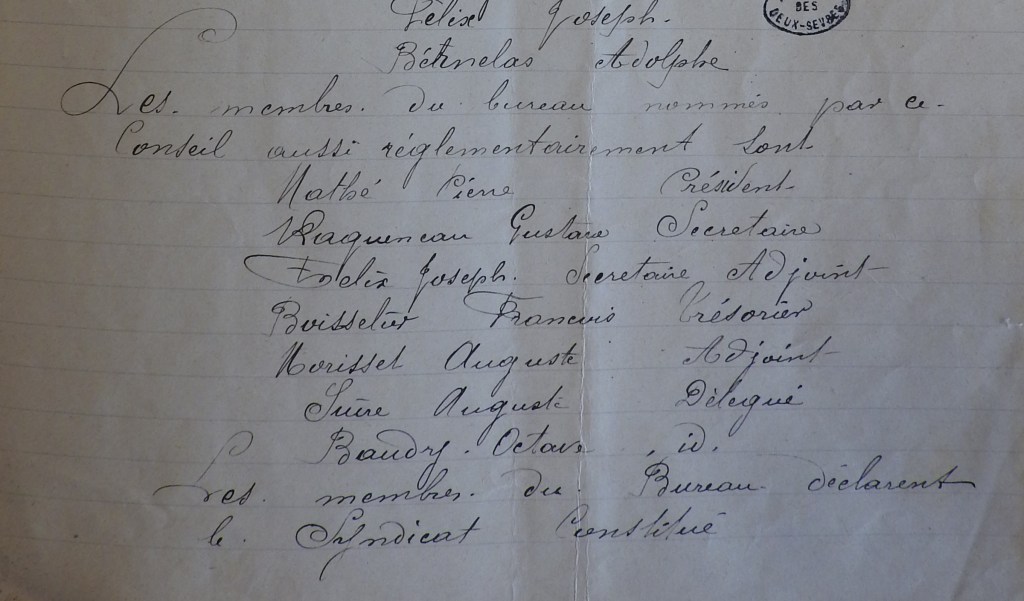 Félix Joseph.
DES
DEUX-SEVRES
Adolphe
Les. membres. du bureau nommés par ce-
Conseil aussi réglementairement sont
Mathé Pierre Président
Ragueneau Gustave Secretaire
Felix Joseph. Secretaire Adjoint
Boisselier Francois Trésorier
Morisset Auguste Adjoint
Auguste Délegué
Baudry. Octave . id.
Les. membres. du. Bureau. déclarent
le. Syndicat Constitué